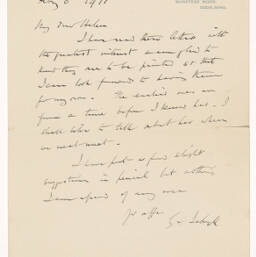 My dear Helen
I have read these letters with
the greatest interest and am glad to
hear they are to be printed so that
I can look forward to having them
for my own. The earlier ones are
from a time before I knew her. I
shall like to talk about her when
we next meet.
I have put a few slight
suggestions in pencil but nothing